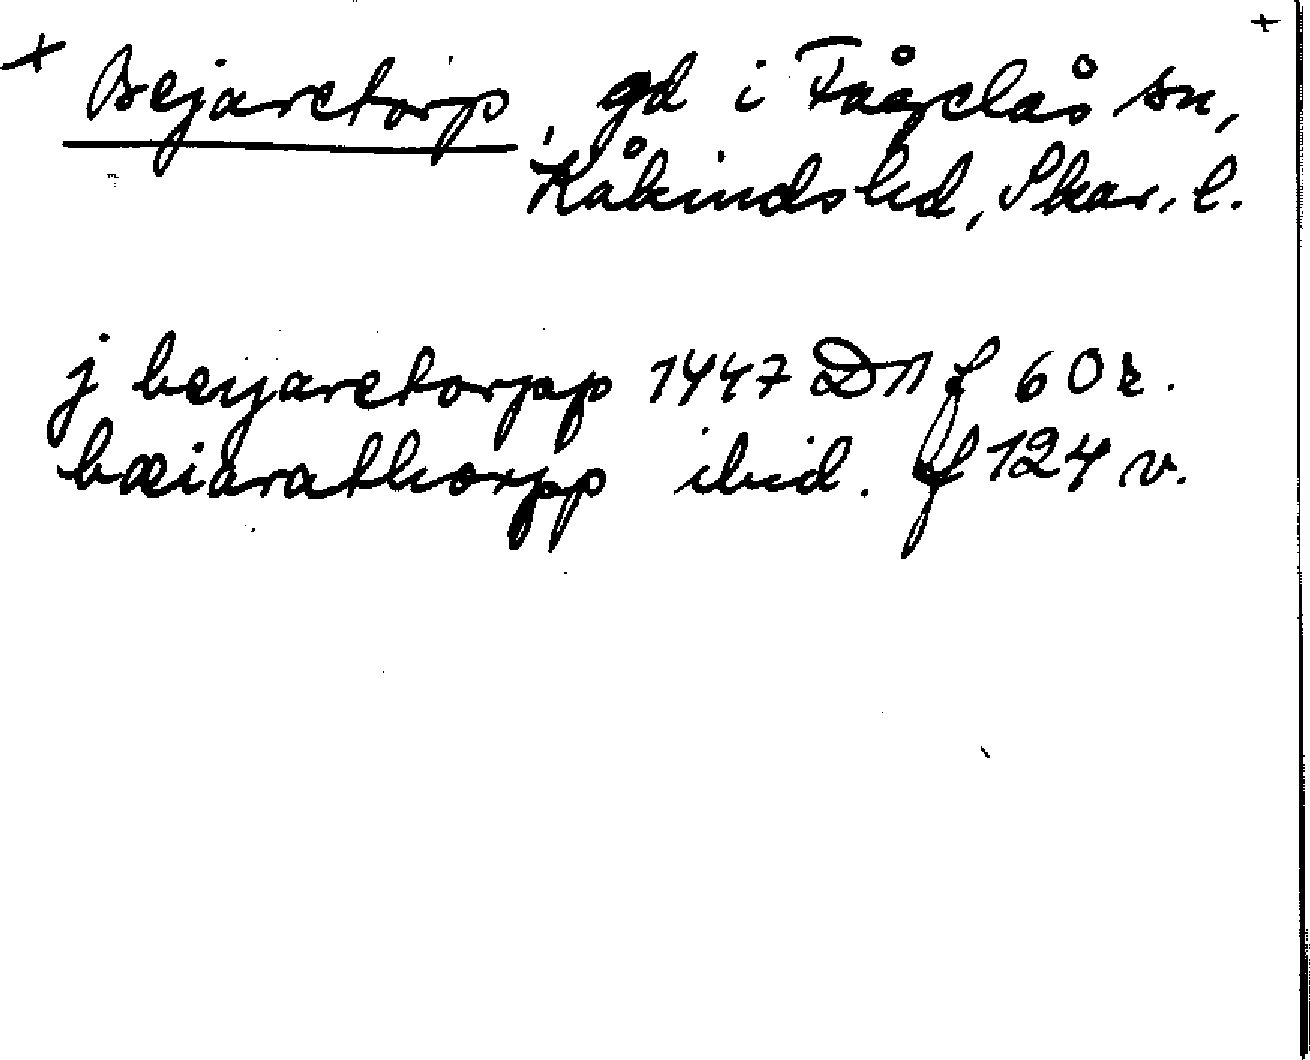 + Bejaretorp, gd i Fågelås sn, +
Kåkindshd, Skar. l.
j beyaretorpp 1447 DN f 60 r.
bæiarathorpp ibid. f 124 v.